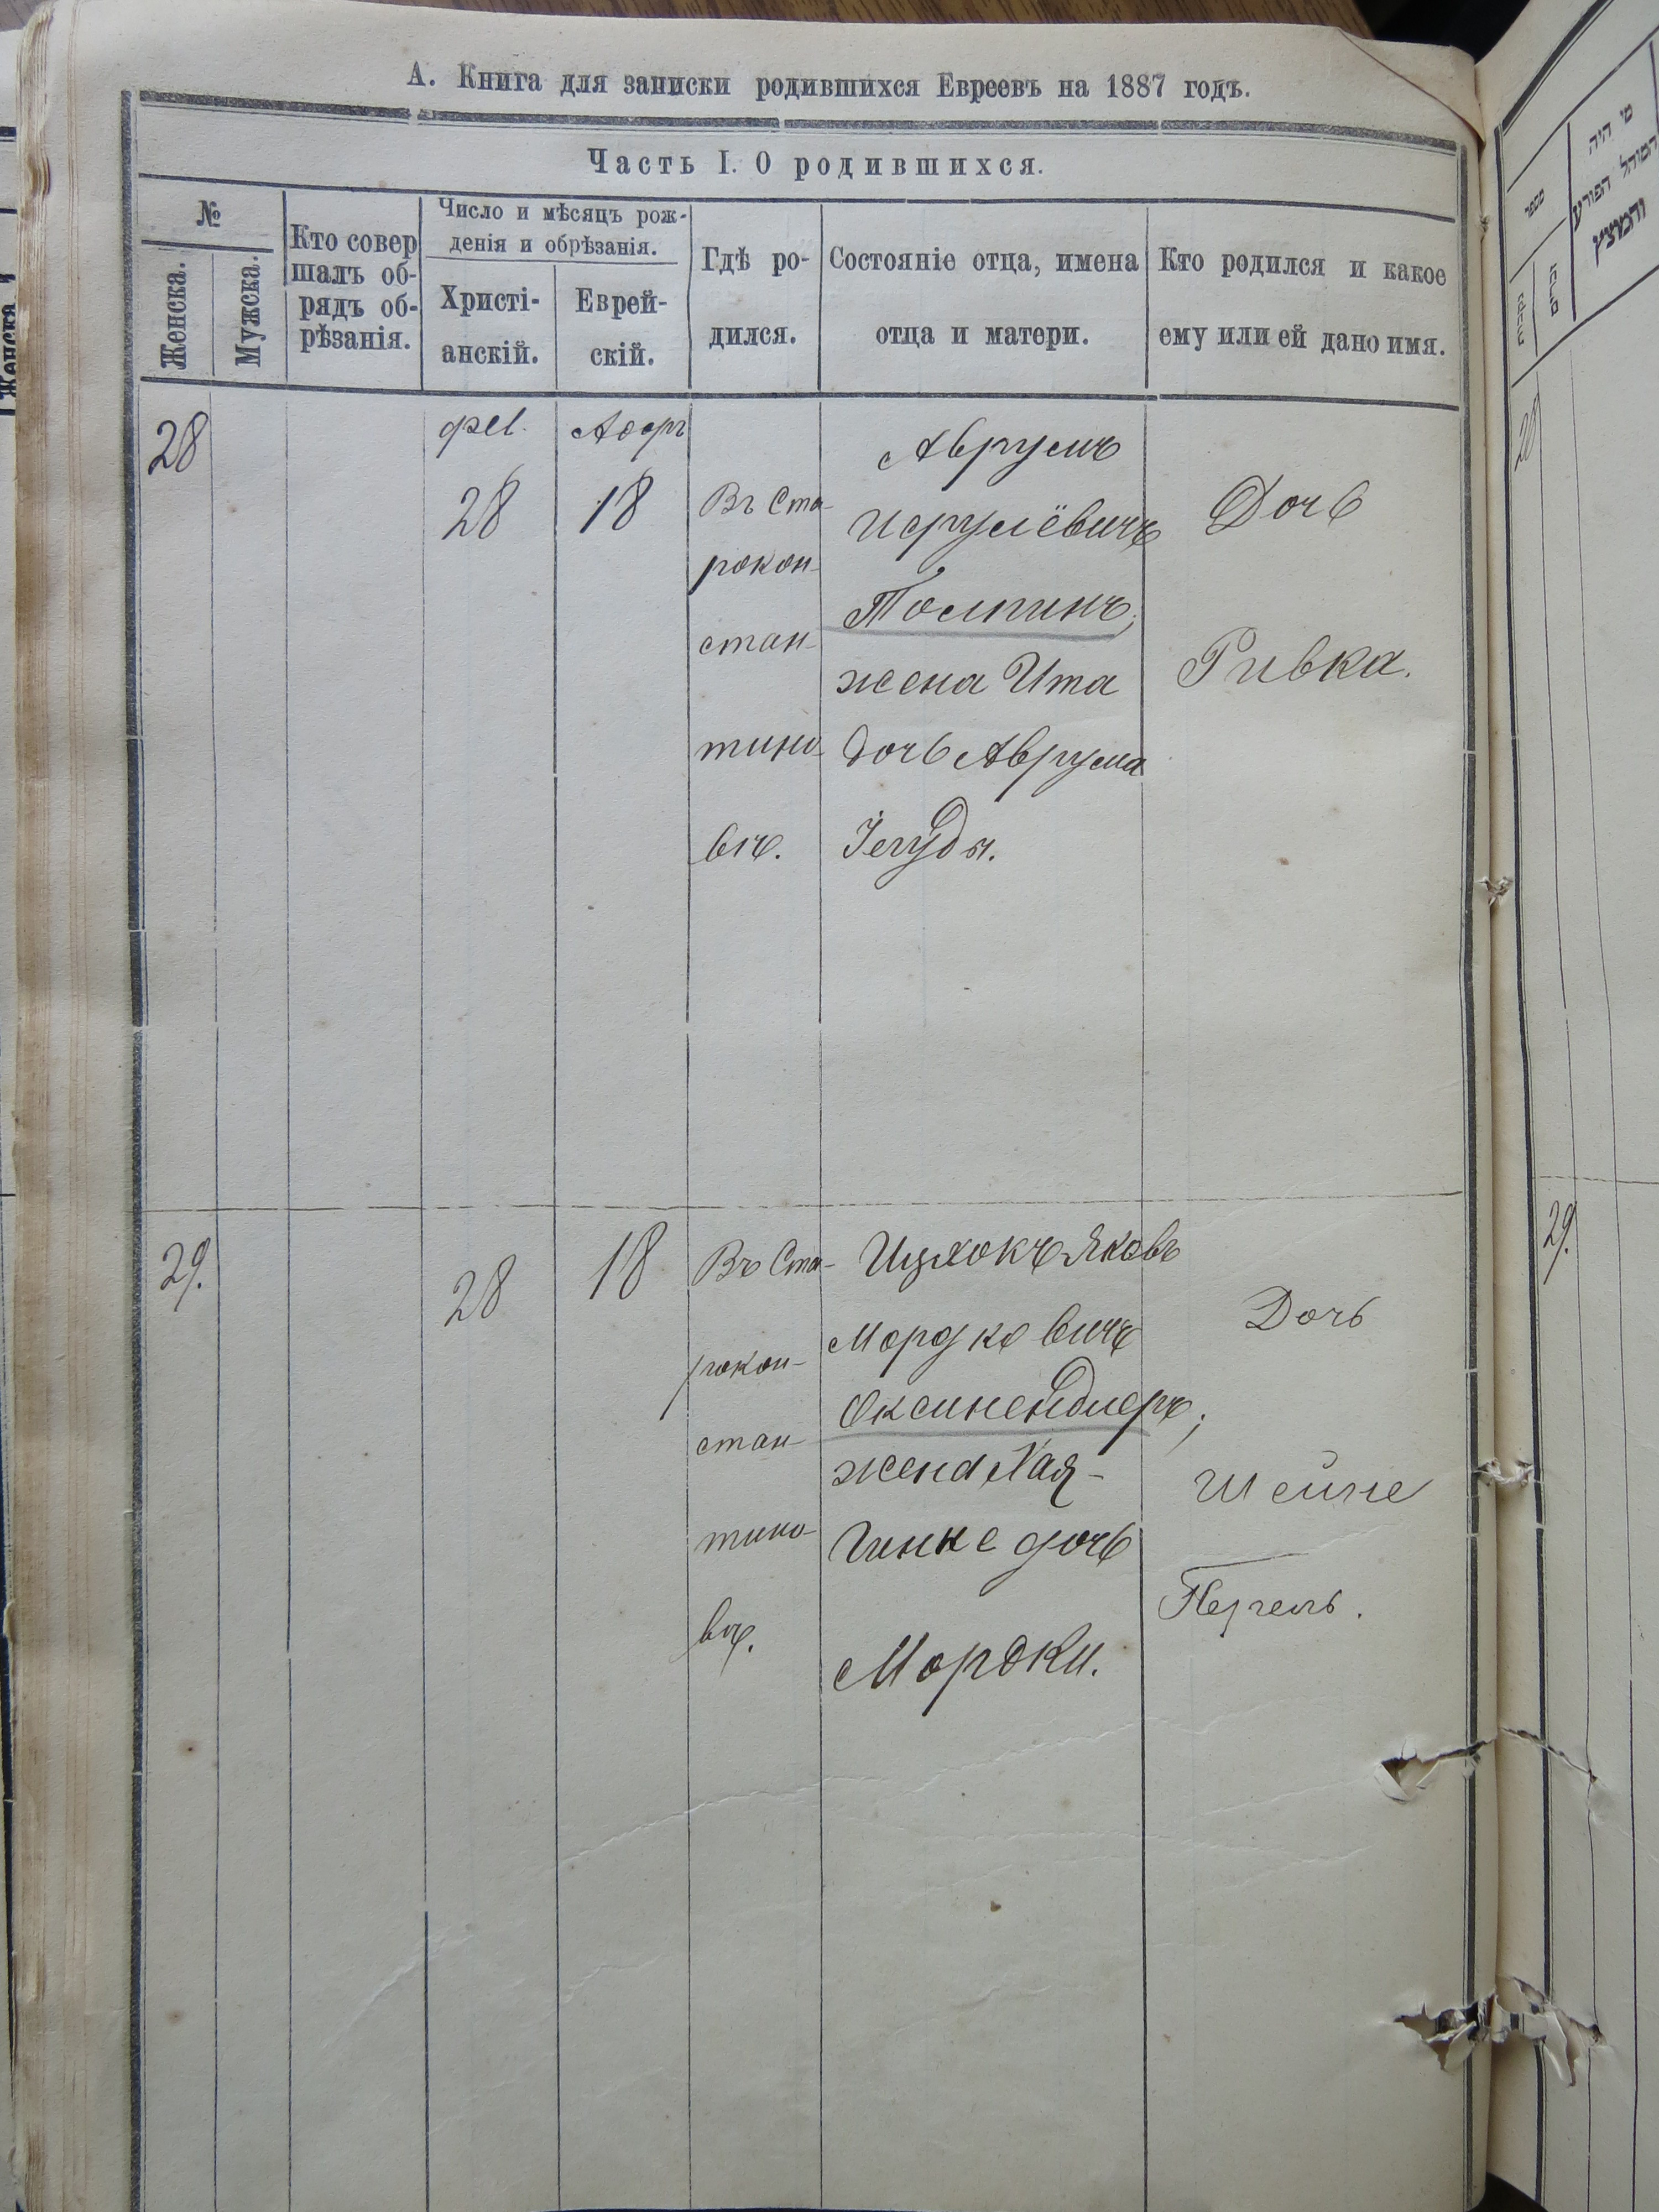 А. Книга для записки родившихся Евреевъ на 1887 годъ.
Часть I. О родившихся.
№
Женска.
Мужска.
Кто совер
шалъ об-
рядъ об-
рѣзанія.
Число и мѣсяцъ рож-
денія и обрѣзанія.
Христі-
анскій.
Еврей-
скій.
Гдѣ ро-
дился.
Состояніе отца, имена
отца и матери.
Кто родился и какое
ему или ей дано имя.
28
фев.
28
Адаръ
18
Въ Ста-
рокон-
стан-
тино-
вѣ.
Аврумъ
Исрулёвичъ
Толпинъ,
жена Ита
дочь Аврума
Іегуды.
Дочь
Ривка.
29.
28
18
Въ Ста-
рокон-
стан-
тино-
вѣ.
Ицхокъ Яковъ
Мордковичъ
жена Хая-
дочь
Мордки.
Дочь
Шейне
מי היה
המוהל הפורע
והמוצץ
מספר
28
29.